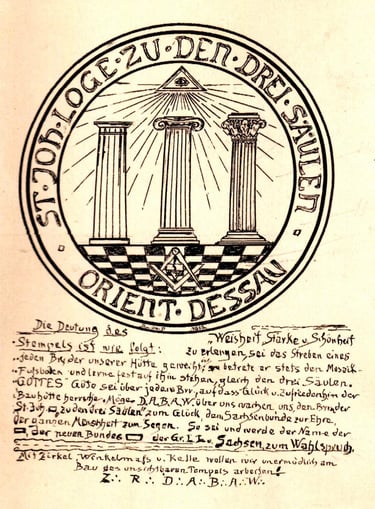 ST·JOH·LOGE·ZU·DEN·DREI·SÄULEN·
ORIENT·DESSAU
Die Deutung des
Stempels ist wie folgt:
"Weisheit, Stärke u Schönheit
zu erlangen, sei das Streben eines
jeden Br. der unserer Hütte gerecht, so betrete er stets den Mosaik-
Fußboden und lerne fest auf ihm stehen, gleich den drei Säulen.
GOTTES Güte sei über jedem Br., auf das Glück u. Zufriedenheit der
Bauhütte herrsche. Möge D.A.B.A.W. über uns wachen, uns, den Brüdern der
St. Joh. zu den drei Säulen" zum Glück, dem Sachsenbunde zur Ehre,
der ganzen Menschheit zum Segen. So sei und werde der Name der
der neuen Bundes der Gr. L. v. Sachsen zum Wahlspruch.
Mit Zirkel, Winkelmaß u. Kelle wollen wir unermüdlich am
Bau des unsichtbaren Tempels arbeiten!
Z∴ R∴ D∴ A∴ B∴ A∴ W∴